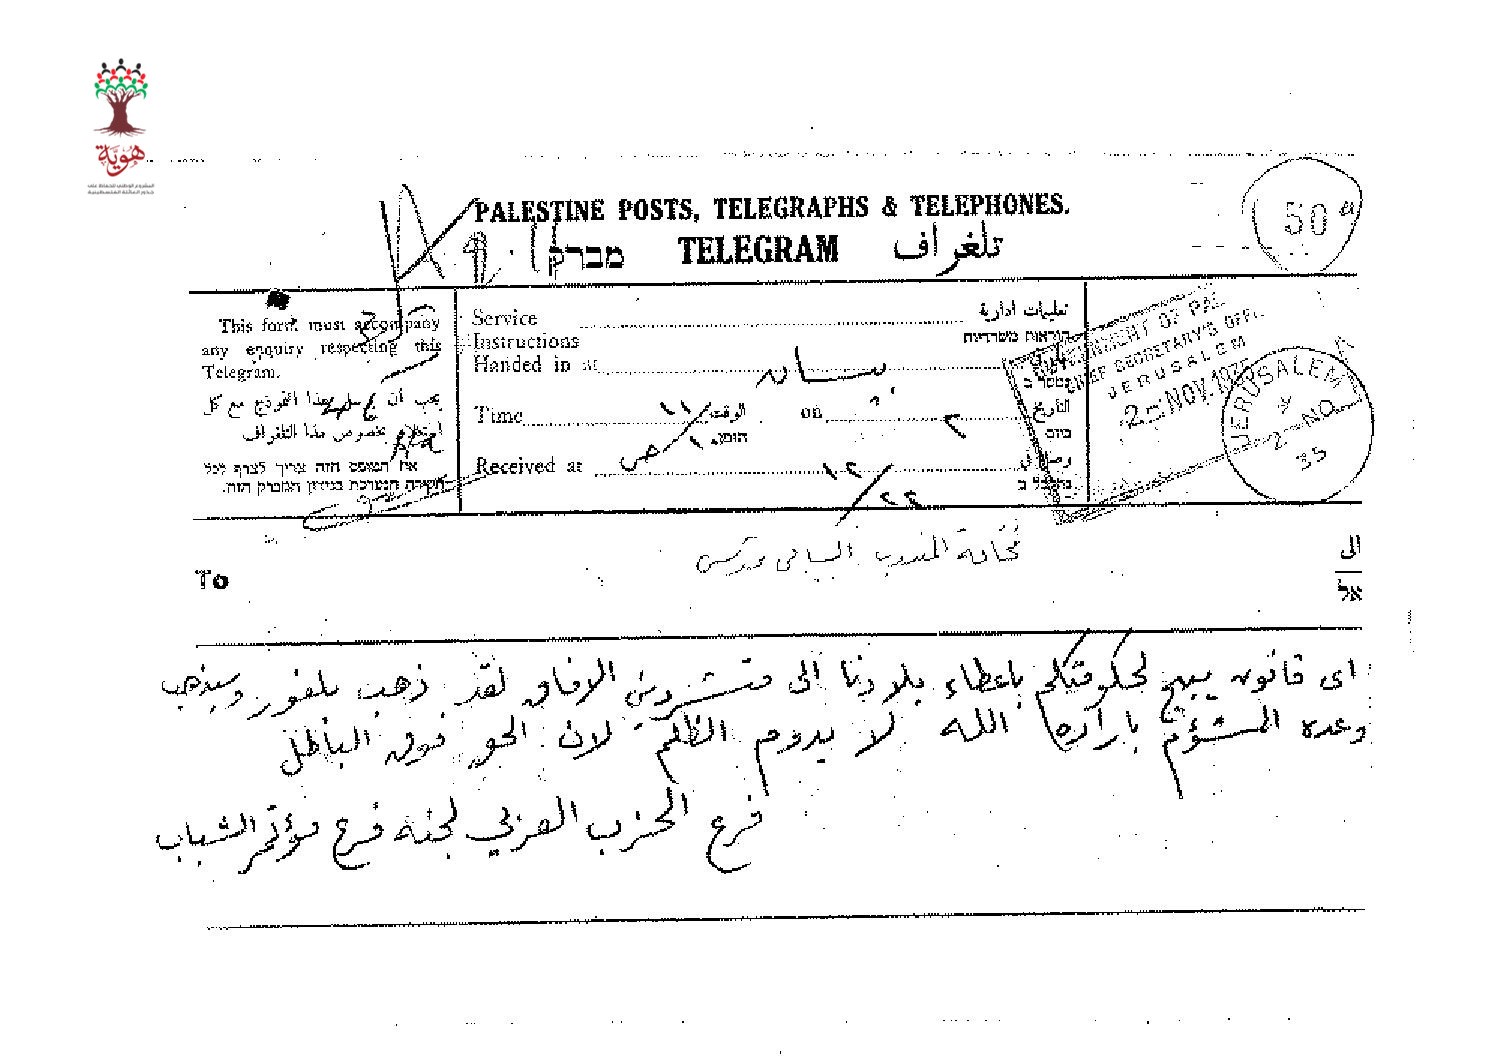 هوية
المشروع الوطني للحفاظ على
جذور العائلة الفلسطينية
PALESTINE POSTS, TELEGRAPHS & TELEPHONES.
מברק TELEGRAM تلغراف
50
This form must accompany
any enquiry respecting this
Telegram.
يجب أن هذا النموذج مع كل
بخصوص هذا التلغراف
את הטופס הזה צריך לצרף לכל
חקירה הנערכת בנידון המברק הזה.
Service تعليمات ادارية
Instructions הוראות משרדיות
Handed in at بيسان
Time ١١/١٠ ص الوقت on ٢ التاريخ
ביום
Received at ١٢/٢٢
GOVERNMENT OF PAL
CHIEF SECRETARY'S OFFI
JERUSALEM
2 - NOV. 193
JERUSALEM
2 - NO
35
To فخامة المندوب السامي قدس الى
אל
اى قانون يبيح لحكومتكم باعطاء بلادنا الى متشردين الافاق لقد ذهب بلفور وسيذهب
وعده المشؤم بارادة الله لا يدوم الظلم لان الحق فوق الباطل
فرع الحزب العربي لجنة فرع مؤتمر الشباب